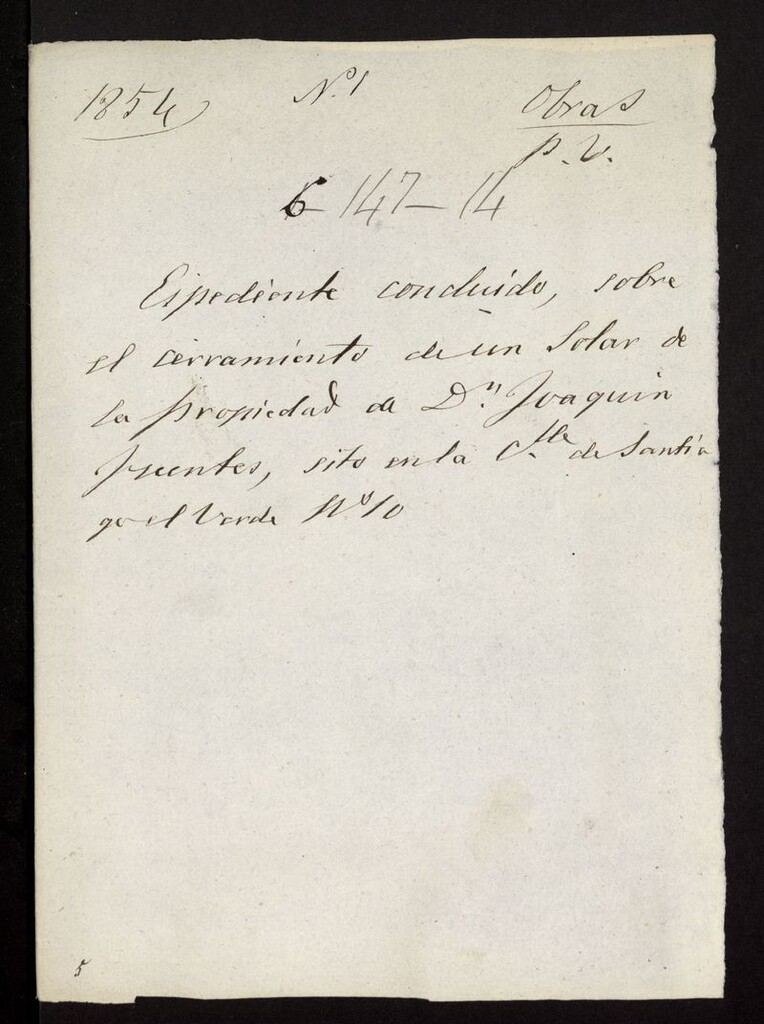 1854 N.º 1 Obras
P. V.
6-147-14
Espediente concluido, sobre
el cerramiento de un Solar de
la propiedad de D.n Joaquin
Fuentes, sito en la C.lle de Santia
go el Verde Nº 10
5